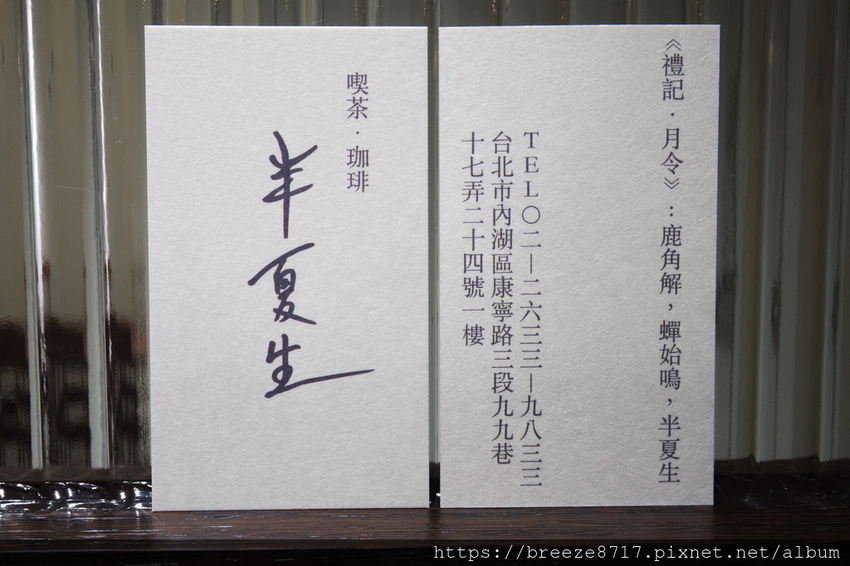 喫茶．珈琲
半夏生
《禮記．月令》：鹿角解，蟬始鳴，半夏生
TEL〇二—二六三三—九八三三
台北市內湖區康寧路三段九九巷
十七弄二十四號一樓
https://breeze8717.pixnet.net/album